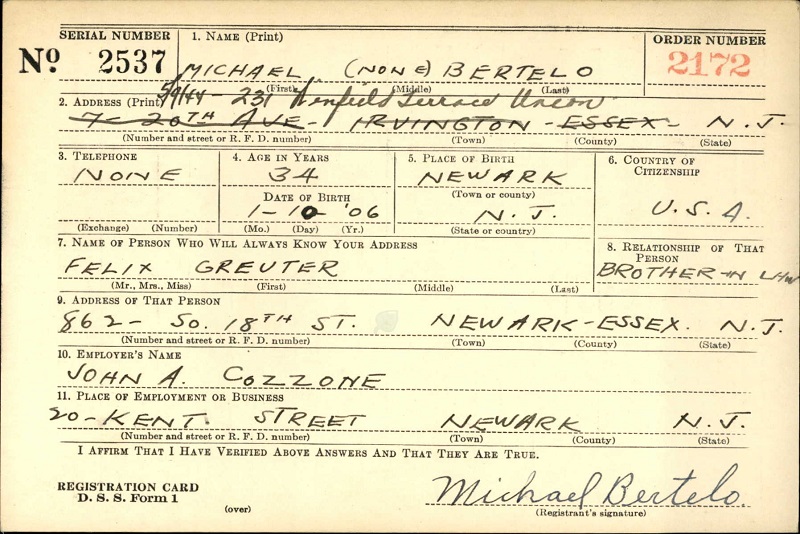 SERIAL NUMBER
No. 2537
1. NAME (Print)
MICHAEL (NONE) BERTELO
(First) (Middle) (Last)
ORDER NUMBER
2172
2. ADDRESS (Print)
5/9/44 - 231 Renfield Terrace Union
7- 20TH AVE- IRVINGTON - ESSEX- N.J.
(Number and street or R. F. D. number) (Town) (County) (State)
3. TELEPHONE
NONE
(Exchange) (Number)
4. AGE IN YEARS
34
DATE OF BIRTH
1-10-'06
(Mo.) (Day) (Yr.)
5. PLACE OF BIRTH
NEWARK
(Town or county)
N.J.
(State or country)
6. COUNTRY OF
CITIZENSHIP
U.S.A.
7. NAME OF PERSON WHO WILL ALWAYS KNOW YOUR ADDRESS
FELIX GREUTER
(Mr., Mrs., Miss) (First) (Middle) (Last)
8. RELATIONSHIP OF THAT
PERSON
BROTHER-IN LAW
9. ADDRESS OF THAT PERSON
862- SO. 18TH ST. NEWARK-ESSEX. N.J.
(Number and street or R. F. D. number) (Town) (County) (State)
10. EMPLOYER'S NAME
JOHN A. COZZONE
11. PLACE OF EMPLOYMENT OR BUSINESS
20-KENT STREET NEWARK N.J.
(Number and street or R. F. D. number) (Town) (County) (State)
I AFFIRM THAT I HAVE VERIFIED ABOVE ANSWERS AND THAT THEY ARE TRUE.
REGISTRATION CARD
D. S. S. Form 1
(over)
Michael Bertelo
(Registrant's signature)